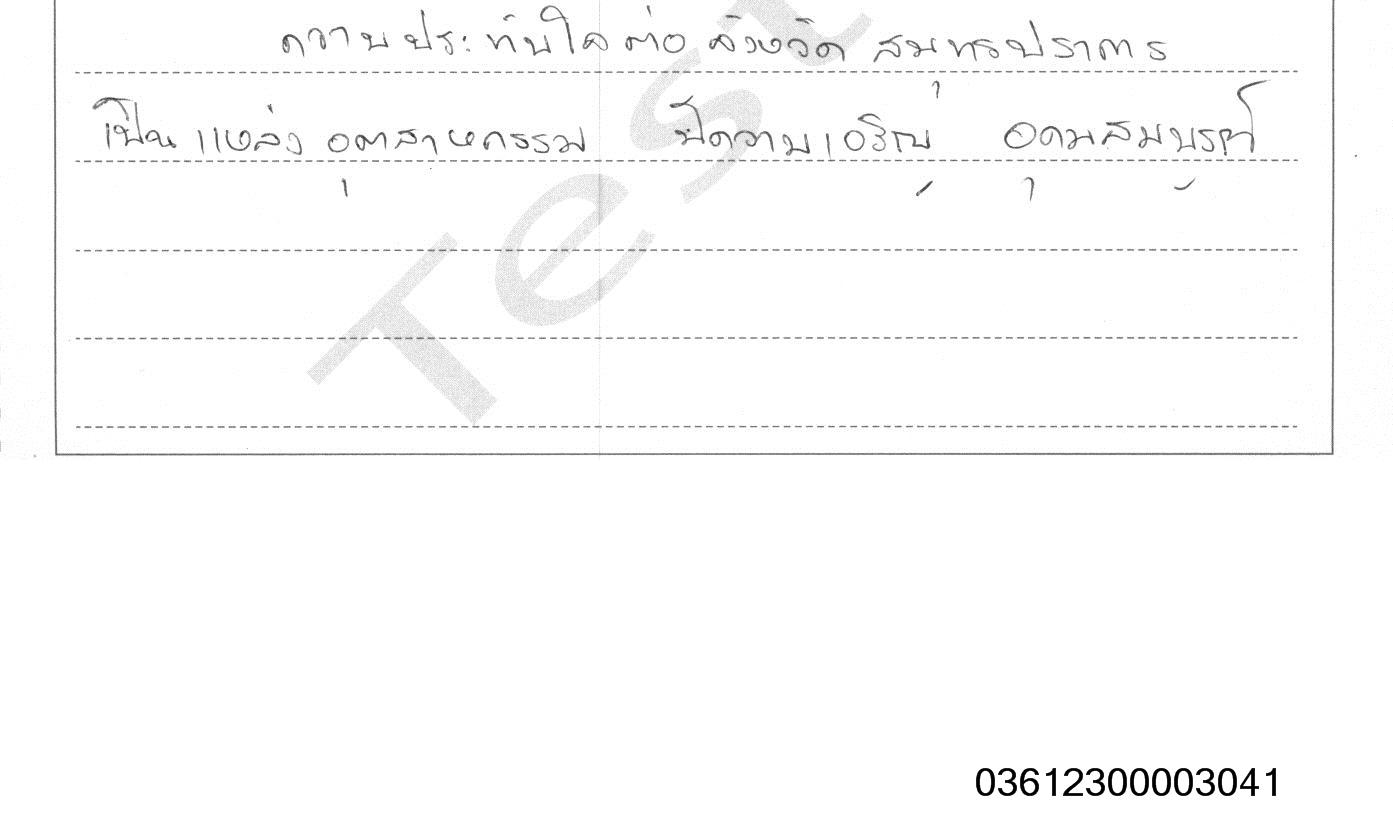 ความประทับใจต่อจังหวัด สมุทรปราการ
เป็นแหล่งอุตสาหกรรม มีความเจริญ อุดมสมบูรณ์
Test
03612300003041